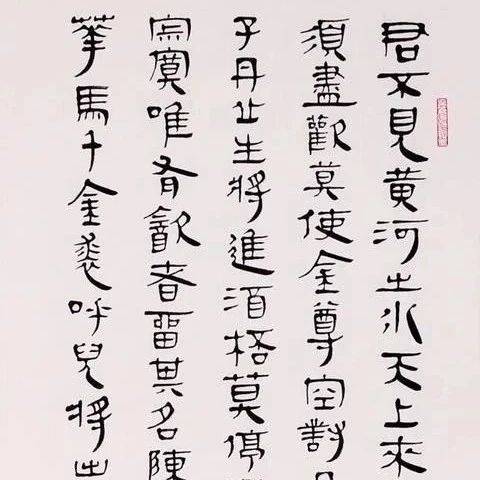 君不見黃河之水天上來
須盡歡莫使金尊空對
子丹丘生將進酒桮莫停
寂寞唯有飲者留其名陳
華馬千金裘呼兒將出